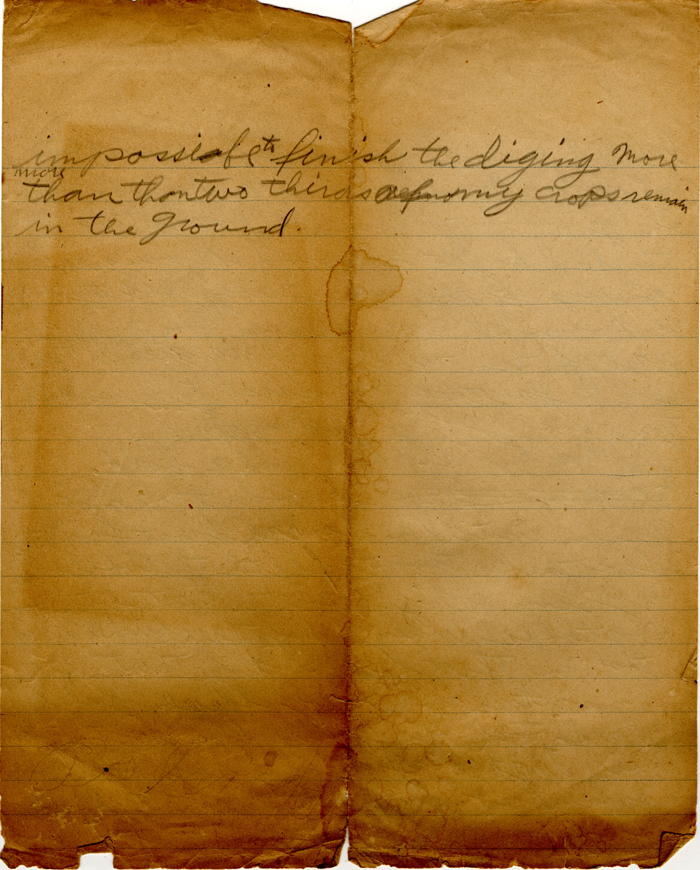 impossible to finish the diging more
more
than than two thirds of my crops remain
in the ground.